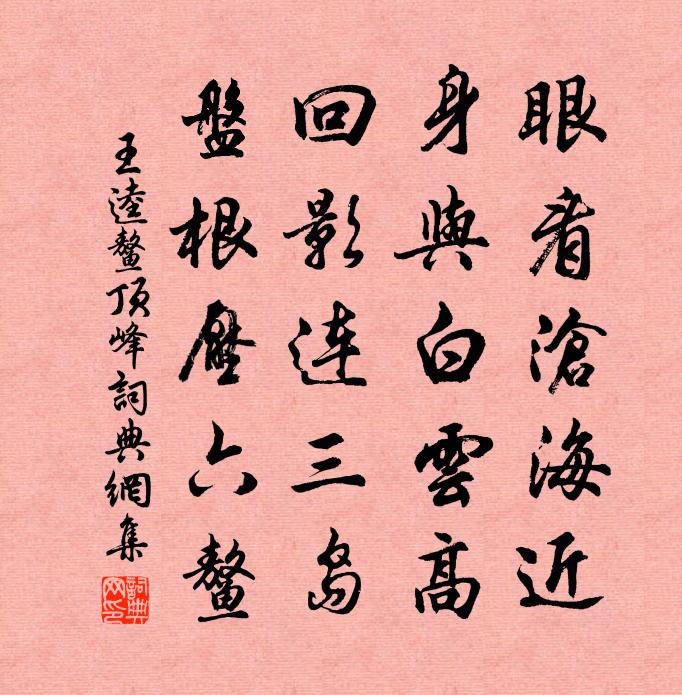 眼看滄海近
身與白雲高
回影連三島
盤根壓六鼇
王逵鼇頂峰詞典網集
詞典網印